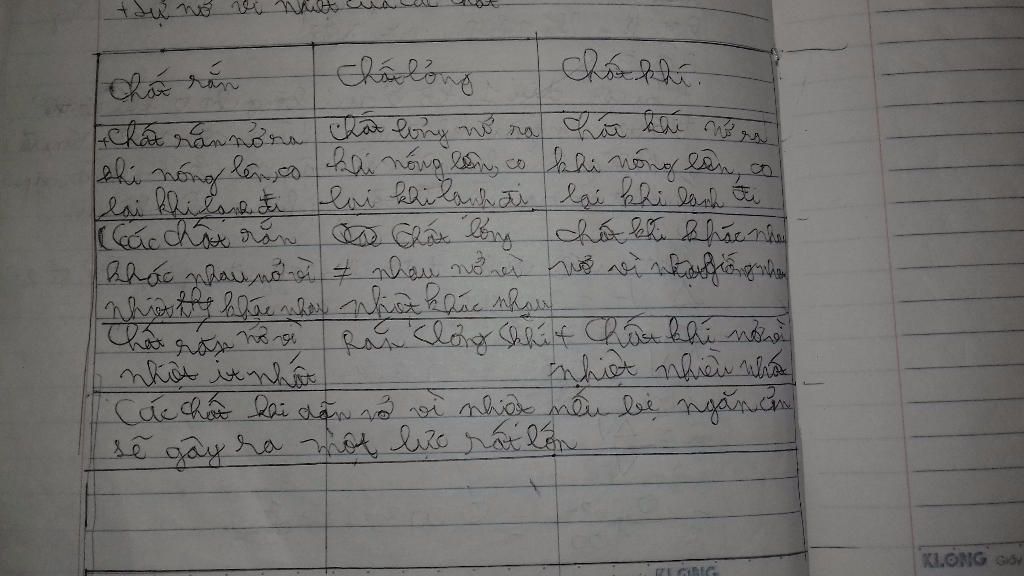 + Sự nở vì nhiệt của các chất
Chất rắn
Chất lỏng
Chất khí.
+ Chất rắn nở ra
khi nóng lên, co
lại khi lạnh đi
Chất lỏng nở ra
khi nóng lên, co
lại khi lạnh đi
Chất khí nở ra
khi nóng lên, co
lại khi lạnh đi
Các chất rắn
khác nhau, nở vì
nhiệt khác nhau
Chất lỏng
≠ nhau nở vì
nhiệt khác nhau
chất khí khác nhau
nở vì nhiệt giống nhau
Chất rắn nở vì
nhiệt ít nhất
Rắn < lỏng < khí
+ Chất khí nở vì
nhiệt nhiều nhất
Các chất khi dãn nở vì nhiệt nếu bị ngăn cản
sẽ gây ra một lực rất lớn
KLONG
KLONG